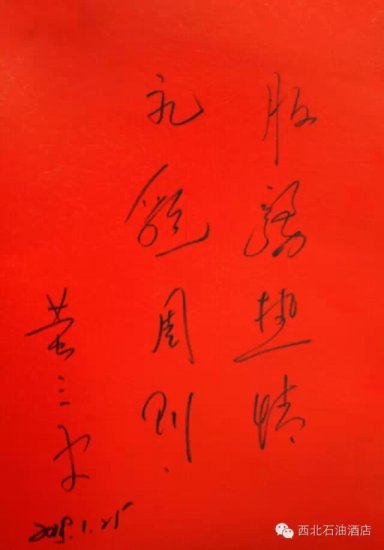 服务热情
礼貌周到
黄三平
2015.1.25
西北石油酒店